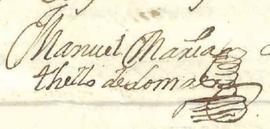 Manuel Maria
thello de Lomas